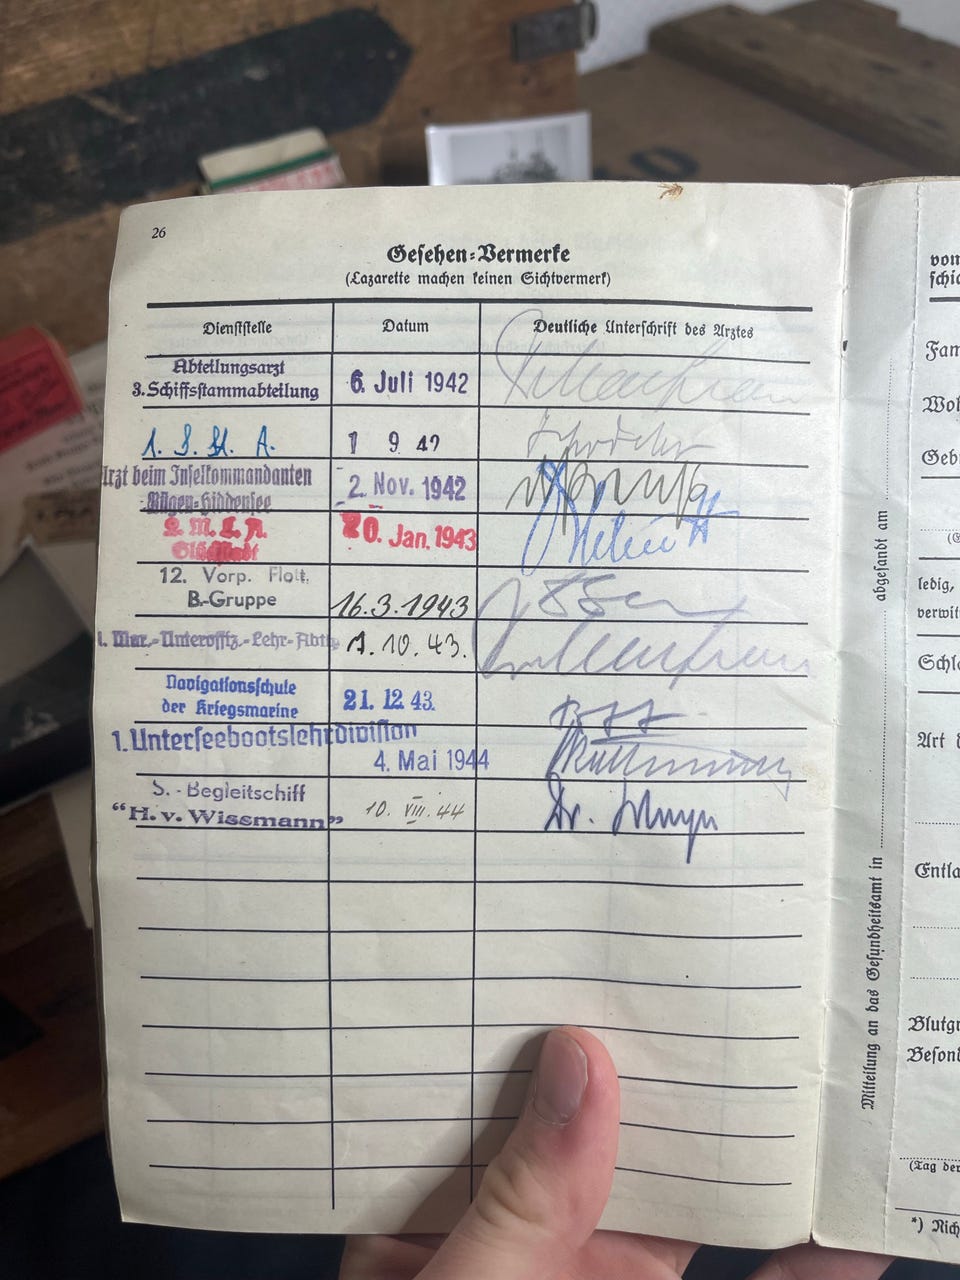 26
Gesehen-Vermerke
(Lazarette machen keinen Sichtvermerk)
Dienststelle Datum Deutliche Unterschrift des Arztes
Abteilungsarzt
3. Schiffsstammabteilung 6. Juli 1942
1. S. St. A. 1 9 42
Arzt beim Inselkommandanten
Rügen-Hiddensee 2. Nov. 1942
20. Jan. 1943
12. Vorp. Flott.
B.-Gruppe 16.3.1943
1. Mar.-Unteroffz.-Lehr-Abtlg. 7.10.43.
Navigationsschule
der Kriegsmarine 21. 12. 43.
1. Unterseebootslehrdivision
4. Mai 1944
S.-Begleitschiff
"H. v. Wissmann" 10. VIII. 44 Dr.
Mitteilung an das Gesundheitsamt in abgesandt am
vom
schic
Fam
Woh
Geb
ledig,
verwit
Schl
Art d
Entla
Blutgr
Besond
(Tag der
*) Nich